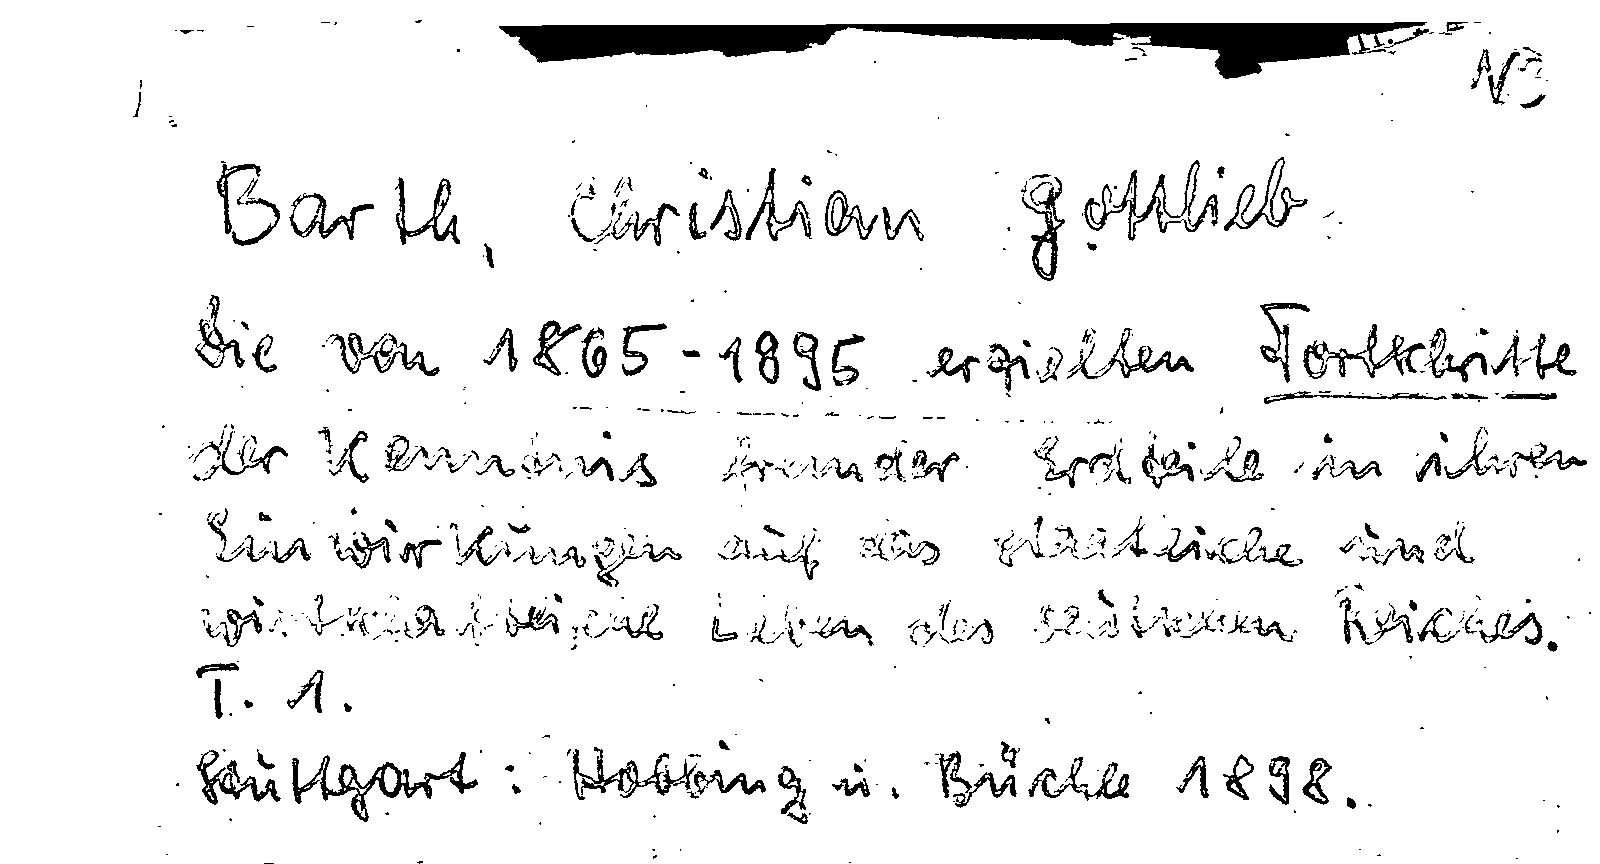 N3
Barth, Christian Gottlieb.
Die von 1865-1895 erzielten Fortschritte
der Kenntnis fremder Erdteile in ihren
Einwirkungen auf das staatliche und
wirtschaftliche Leben des deutschen Reiches.
T. 1.
Stuttgart: Hobbing u. Büchle 1898.